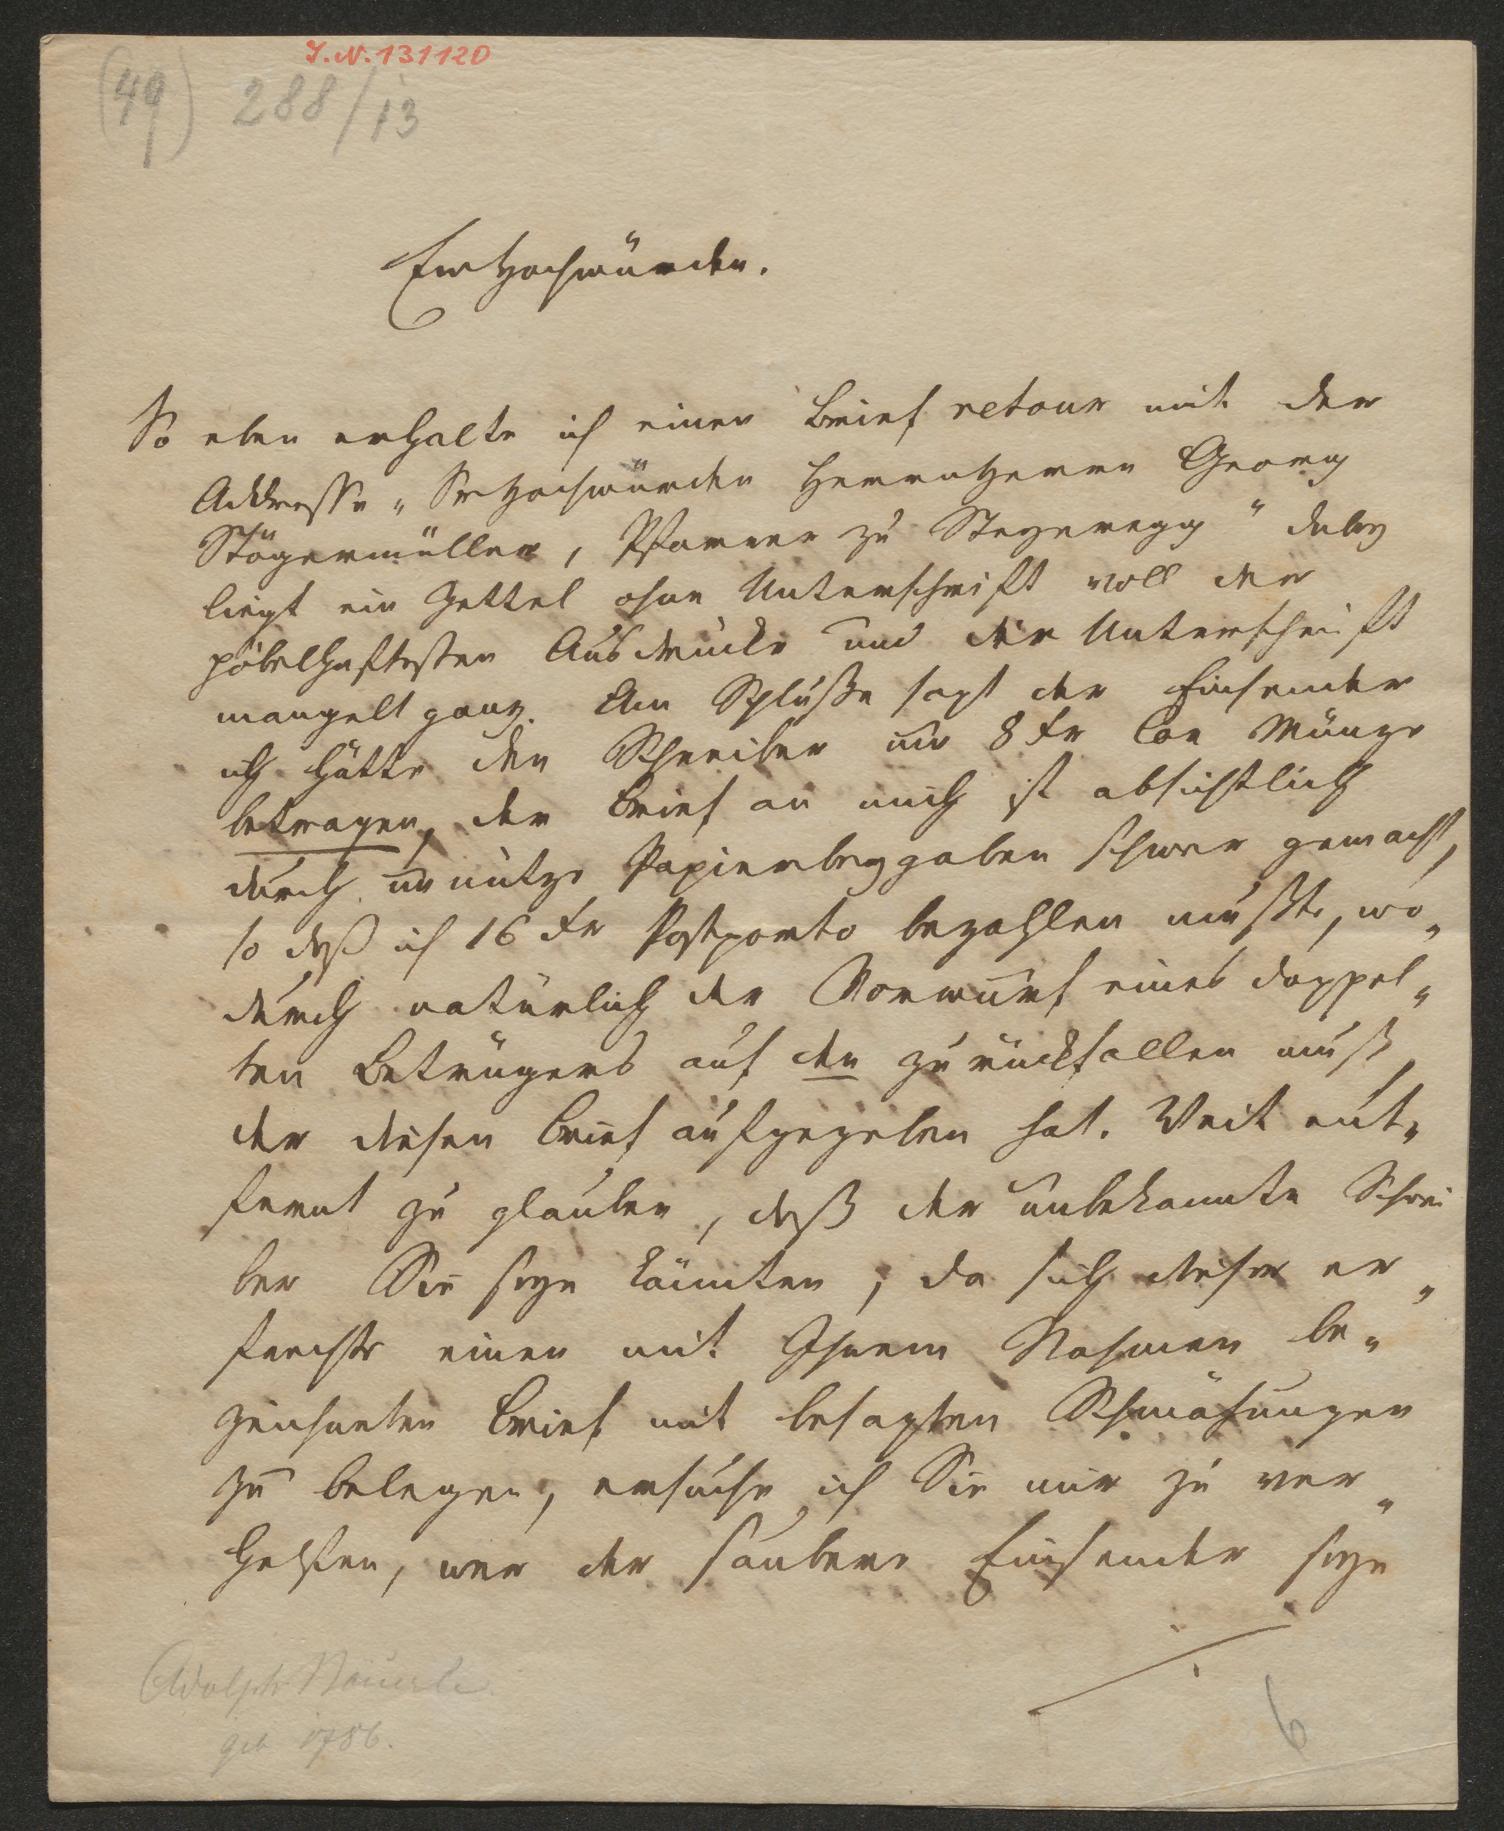 J. N. 131120
(49) 288/13
Euer Hochwürden.
So eben erhalte ich einen Brief retour mit der
Addresse „Sr Hochwürden Herrn Herrn Georg
Stögermüller, Pfarrer zu Steyeregg" dabey
liegt ein Zettel ohne Unterschrift voll der
pöbelhaftesten Ausdrücke und die Unterschrift
mangelt ganz. Am Schluße sagt der Einsender
ich hätte den Schreiber um 8 Kr Con Münze
betrogen, der Brief an mich ist absichtlich
durch unnütze Papierbeygaben schwer gemacht,
so daß ich 16 Kr Postporto bezahlen mußte, wo„
durch natürlich der Vorwurf eines doppel„
ten Betrügers auf den zurückfallen muß,
der diesen Brief aufgegeben hat. Weit ent„
fernt zu glauben, daß der unbekannte Schrei
ber Sie seyn könnten, da sich dieser er„
frechte einen mit Ihrem Nahmen be„
zeichneten Brief mit besagten Schmähungen
zu belegen, ersuche ich Sie mir zu ver„
helfen, wer der saubere Einsender seye
Adolph Bäuerle
geb 1786.
6